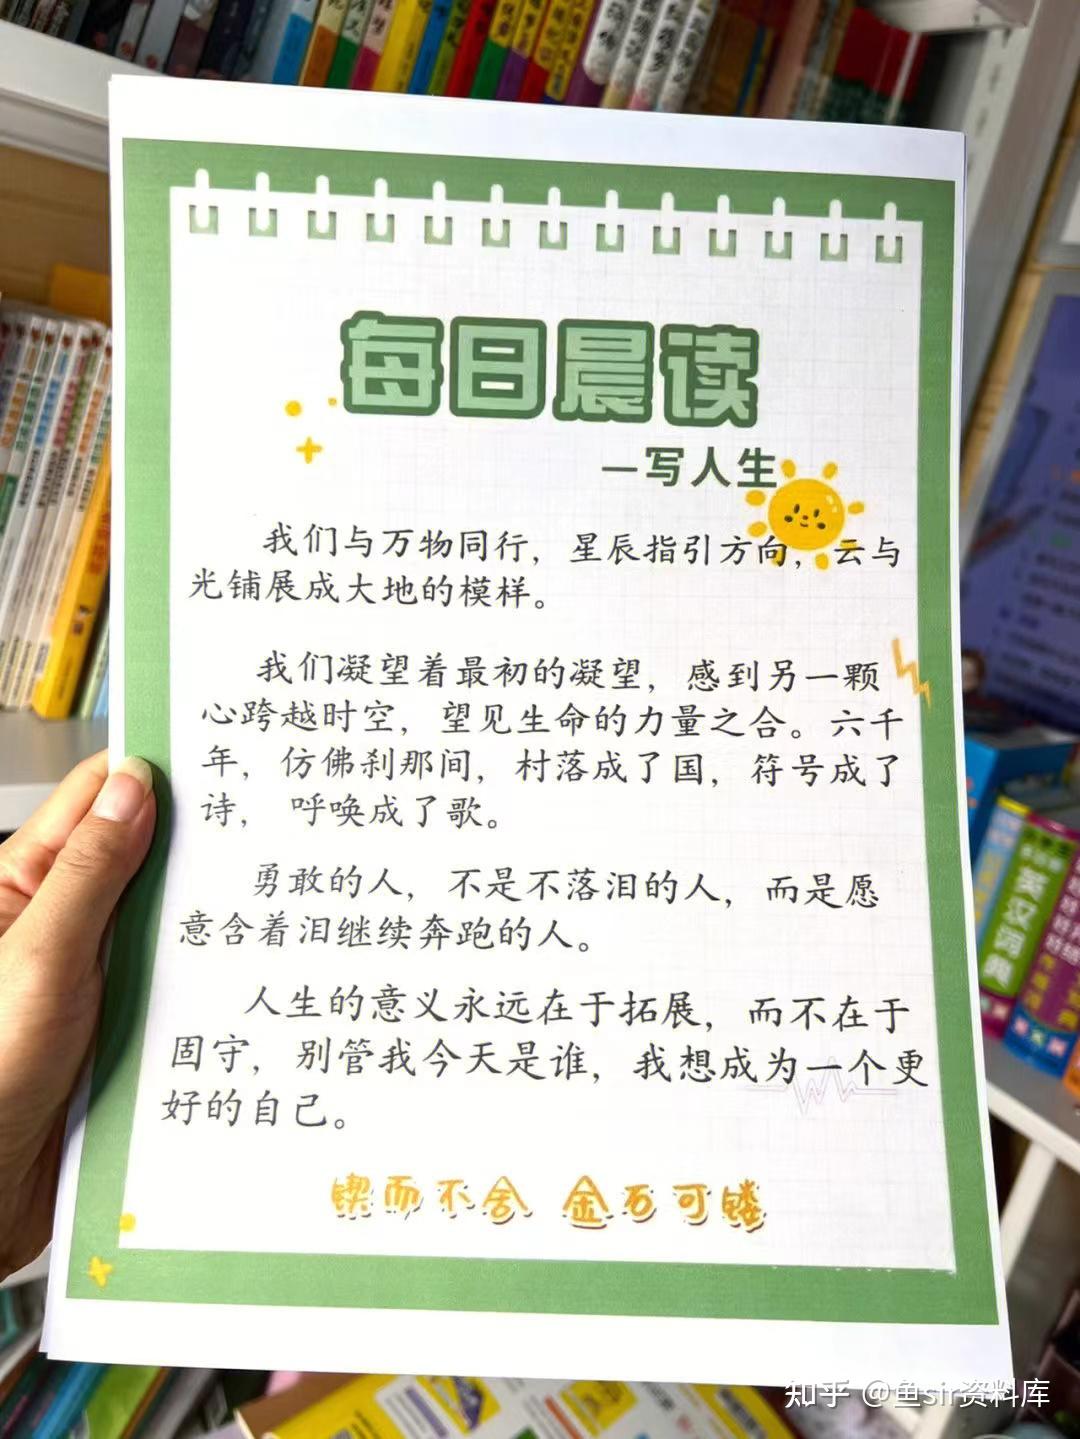 每日晨读
—写人生
我们与万物同行，星辰指引方向，云与
光铺展成大地的模样。
我们凝望着最初的凝望，感到另一颗
心跨越时空，望见生命的力量之合。六千
年，仿佛刹那间，村落成了国，符号成了
诗，呼唤成了歌。
勇敢的人，不是不落泪的人，而是愿
意含着泪继续奔跑的人。
人生的意义永远在于拓展，而不在于
固守，别管我今天是谁，我想成为一个更
好的自己。
锲而不舍 金石可镂
英汉词典
知乎 @鱼sir资料库